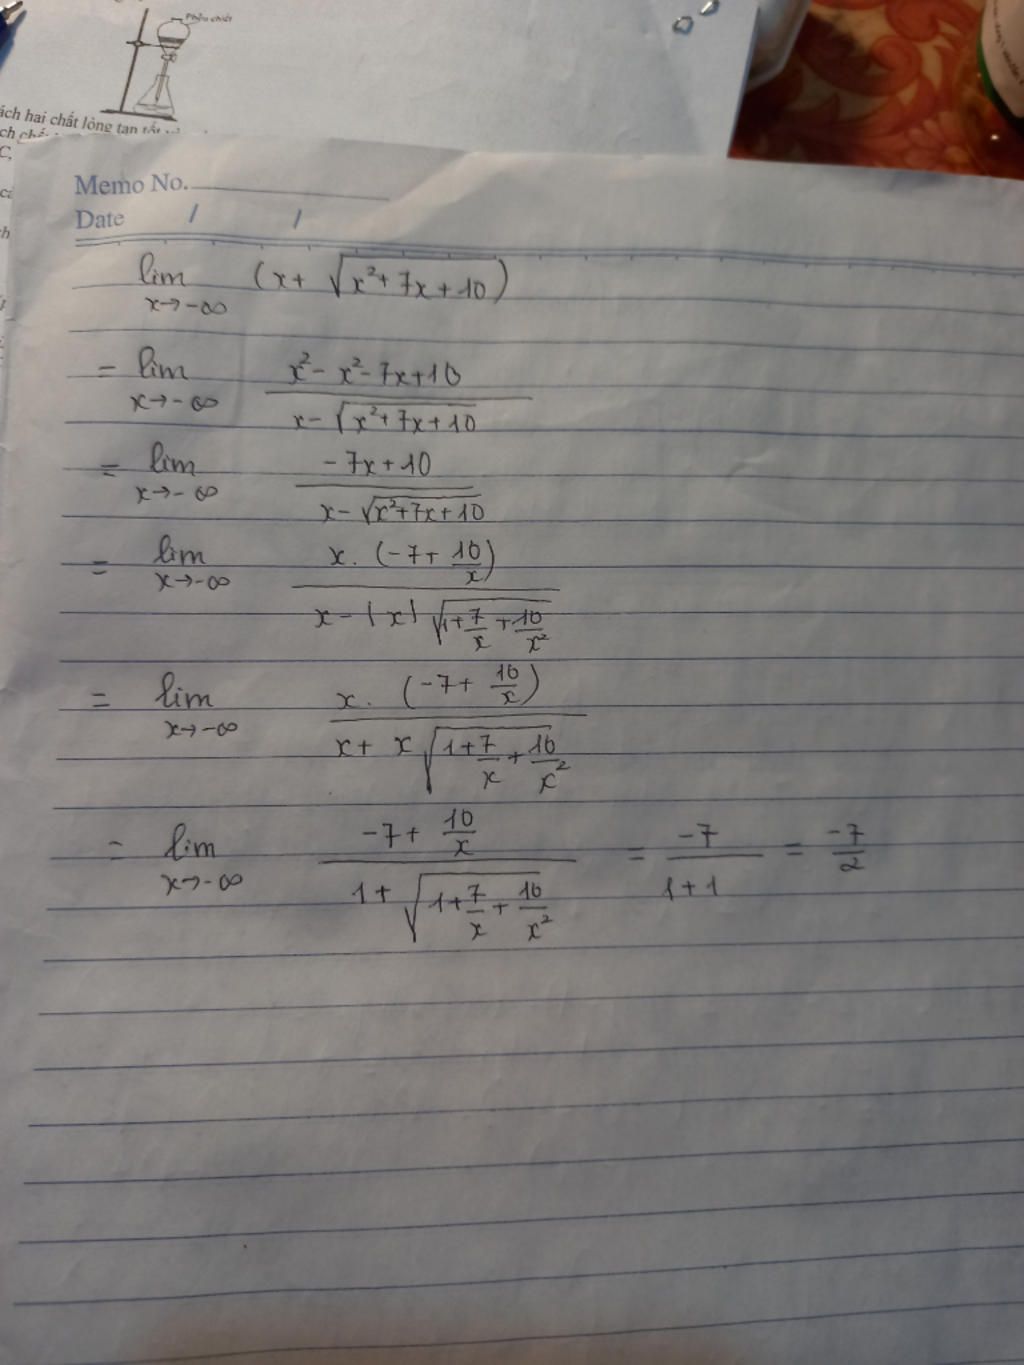 Phễu chiết
ách hai chất lỏng tan tốt
ch
C,
Memo No.
Date / /
lim x→-∞ (x + √(x²+7x+10))
= lim x→-∞ (x² - x² - 7x + 10)/(x - √(x²+7x+10))
= lim x→-∞ (-7x + 10)/(x - √(x²+7x+10))
= lim x→-∞ (x. (-7 + 10/x))/(x - |x| √(1 + 7/x + 10/x²))
= lim x→-∞ (x. (-7 + 10/x))/(x + x √(1 + 7/x + 10/x²))
= lim x→-∞ (-7 + 10/x)/(1 + √(1 + 7/x + 10/x²)) = -7/(1+1) = -7/2